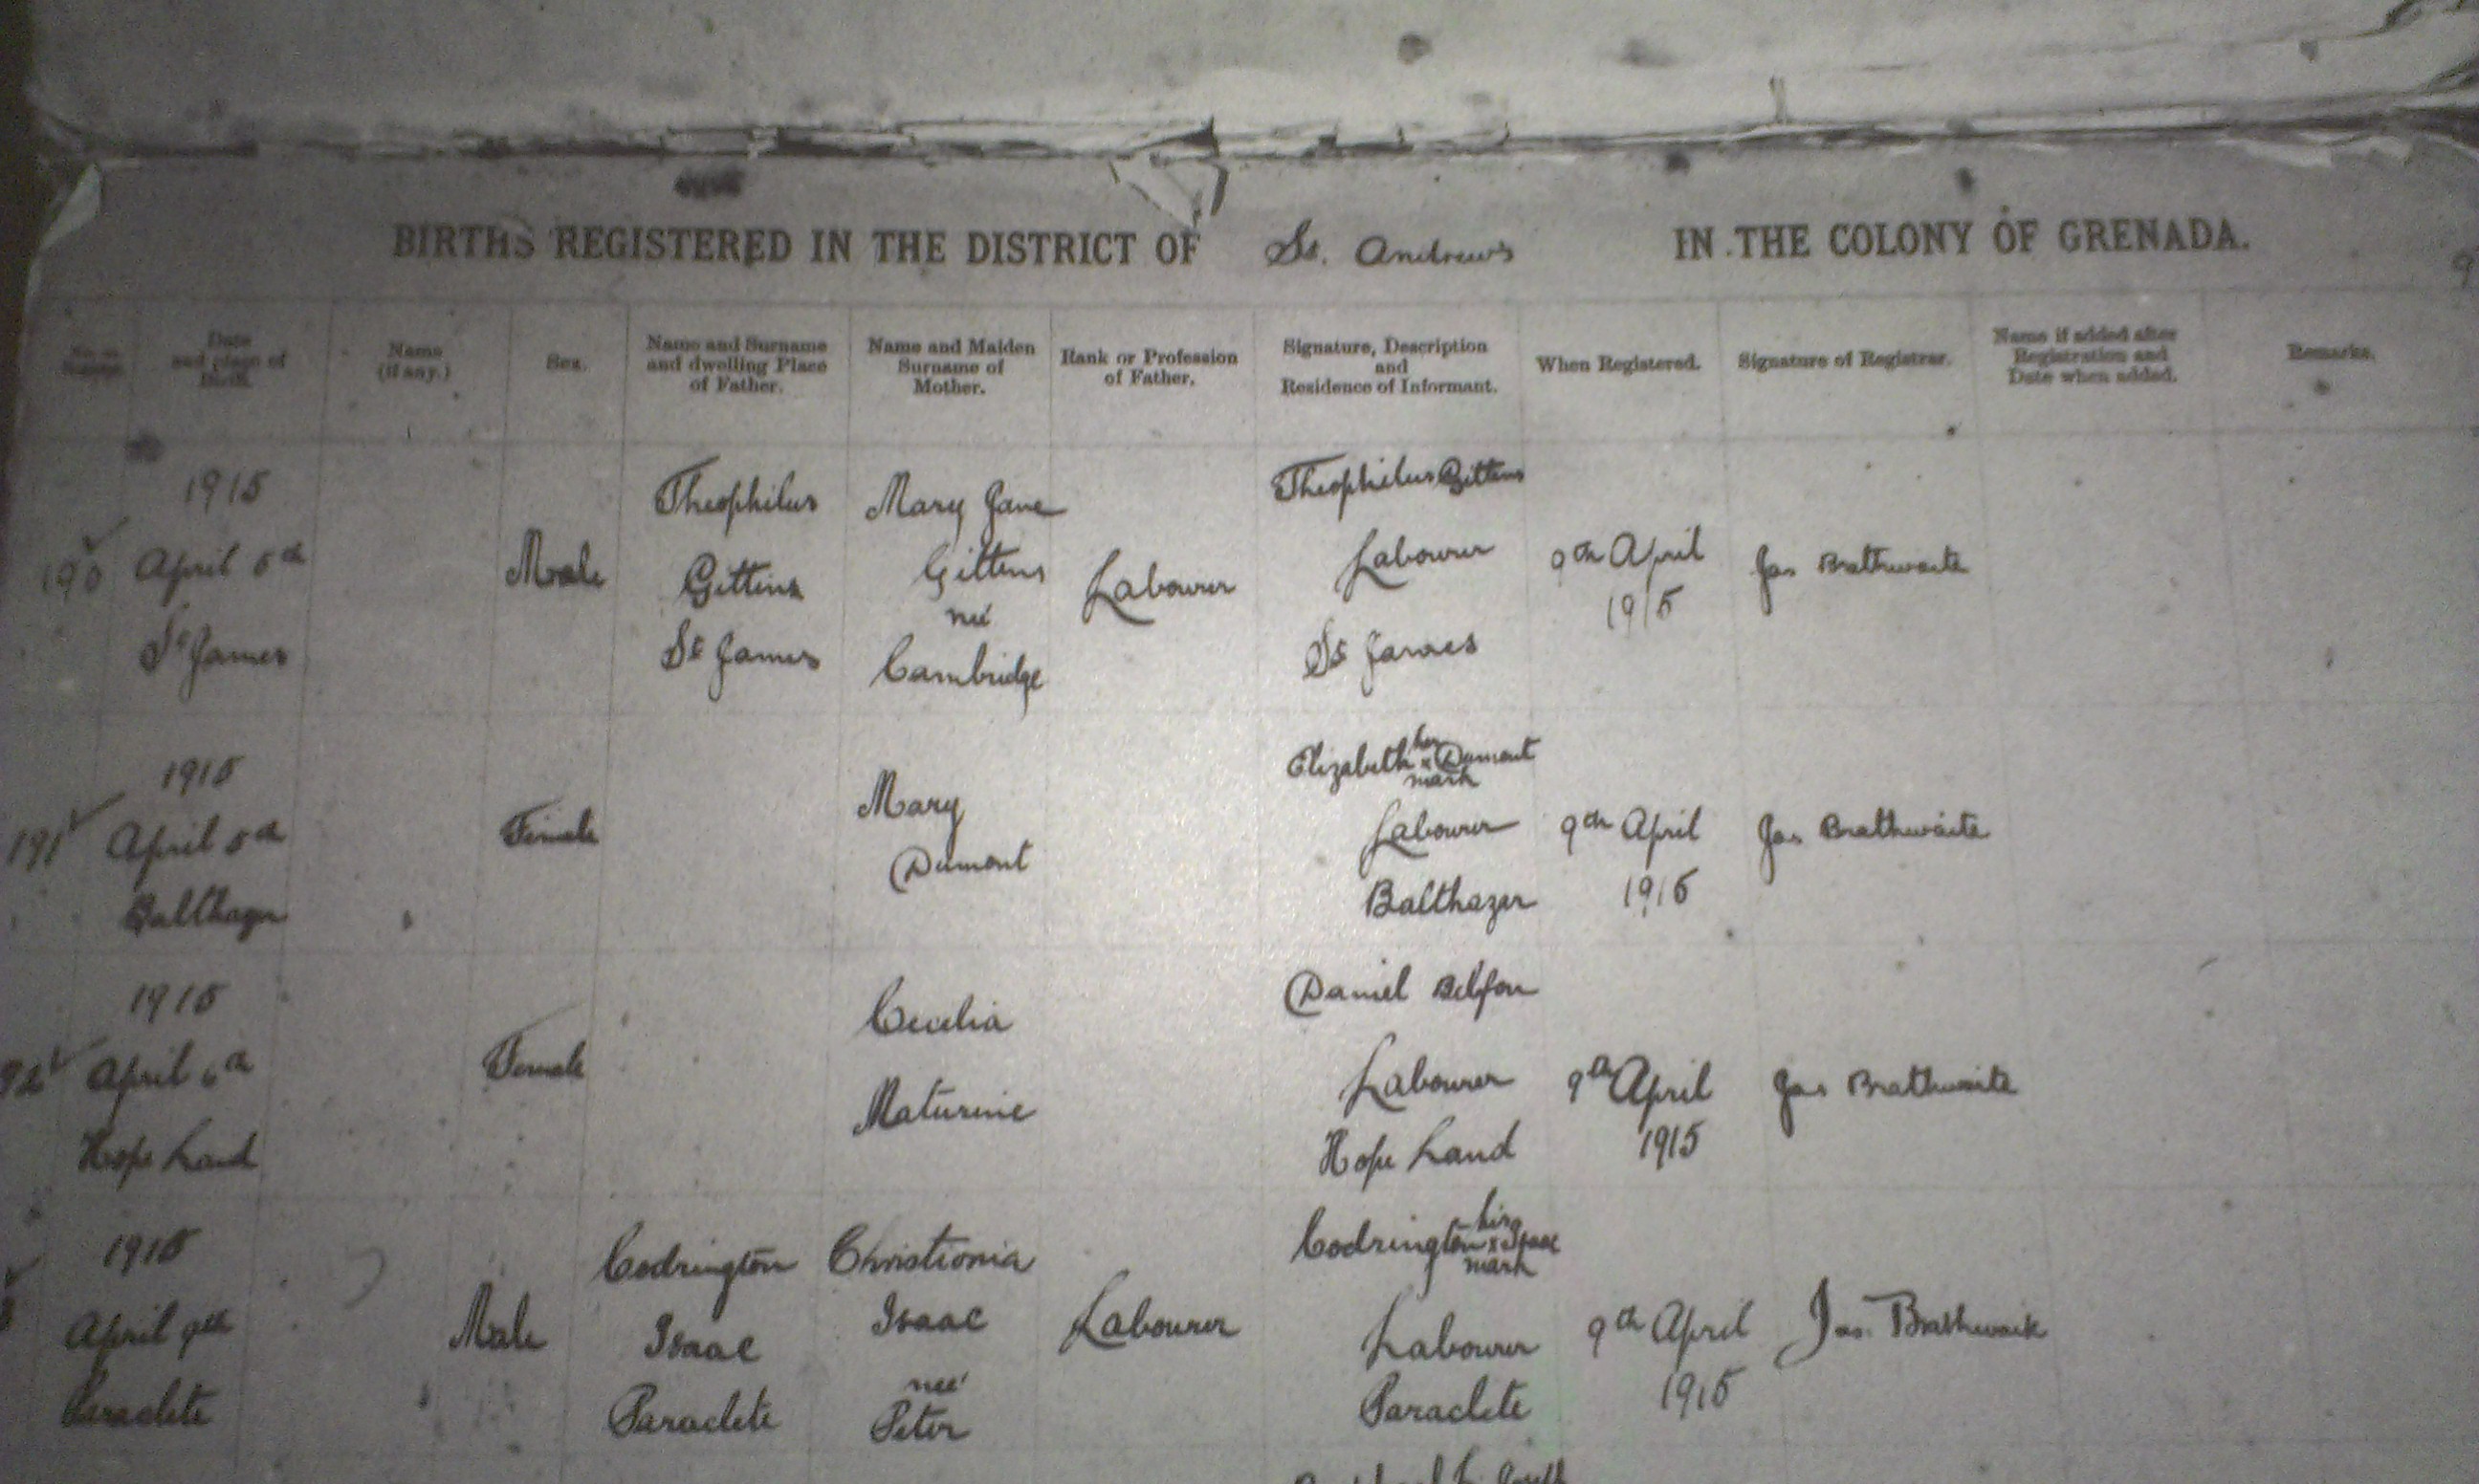 BIRTHS REGISTERED IN THE DISTRICT OF St. Andrew's IN THE COLONY OF GRENADA.
Date and place of Birth.
Name (if any.)
Sex.
Name and Surname and dwelling Place of Father.
Name and Maiden Surname of Mother.
Rank or Profession of Father.
Signature, Description and Residence of Informant.
When Registered.
Signature of Registrar.
Name if added after Registration and Date when added.
Remarks.
190
1915
April 5th
St James
Male
Theophilus
Gittens
St James
Mary Jane
Gittens
neé
Cambridge
Labourer
Theophilus Gittens
Labourer
St James
9th April
1915
Jas Brathwaite
191
1915
April 5th
Balthazer
Female
Mary
Dumont
Elizabeth her x mark Dumont
Labourer
Balthazer
9th April
1915
Jas Brathwaite
1915
April 6th
Hope Land
Female
Cecelia
Maturine
Daniel Belfon
Labourer
Hope Land
9th April
1915
Jas Brathwaite
1915
April 9th
Paraclete
Male
Codrington
Isaac
Paraclete
Christiania
Isaac
neé
Peter
Labourer
Codrington his x mark Isaac
Labourer
Paraclete
9th April
1915
Jas. Brathwaite